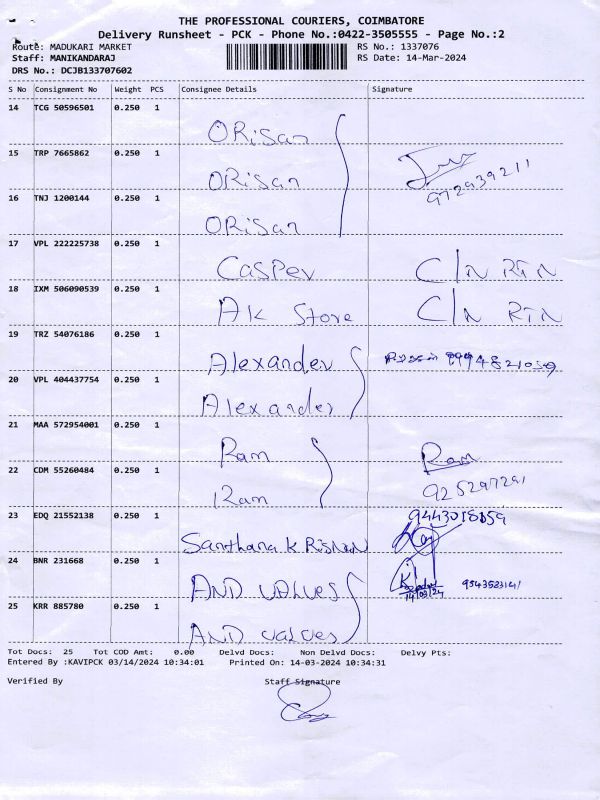 THE PROFESSIONAL COURIERS, COIMBATORE
Delivery Runsheet - PCK - Phone No.:0422-3505555 - Page No.:2
Route: MADUKARI MARKET RS No.: 1337076
Staff: MANIKANDARAJ RS Date: 14-Mar-2024
DRS No.: DCJB133707602
S No Consignment No Weight PCS Consignee Details Signature
14 TCG 50596501 0.250 1 ORisan
15 TRP 7665862 0.250 1 ORisan
16 TNJ 1200144 0.250 1 ORisan
17 VPL 222225738 0.250 1 Casper C/N RTN
18 IXM 506090539 0.250 1 AK Store C/N RTN
19 TRZ 54076186 0.250 1 Alexander
20 VPL 404437754 0.250 1 Alexander
21 MAA 572954001 0.250 1 Ram Ram
22 CDM 55260484 0.250 1 Ram 925297291
23 EDQ 21552138 0.250 1 Santhana KRisnan
24 BNR 231668 0.250 1 AND VALVES 14/03/24
25 KRR 885780 0.250 1 AND Valves
Tot Docs: 25 Tot COD Amt: 0.00 Delvd Docs: Non Delvd Docs: Delvy Pts:
Entered By :KAVIPCK 03/14/2024 10:34:01 Printed On: 14-03-2024 10:34:31
Verified By Staff Signature